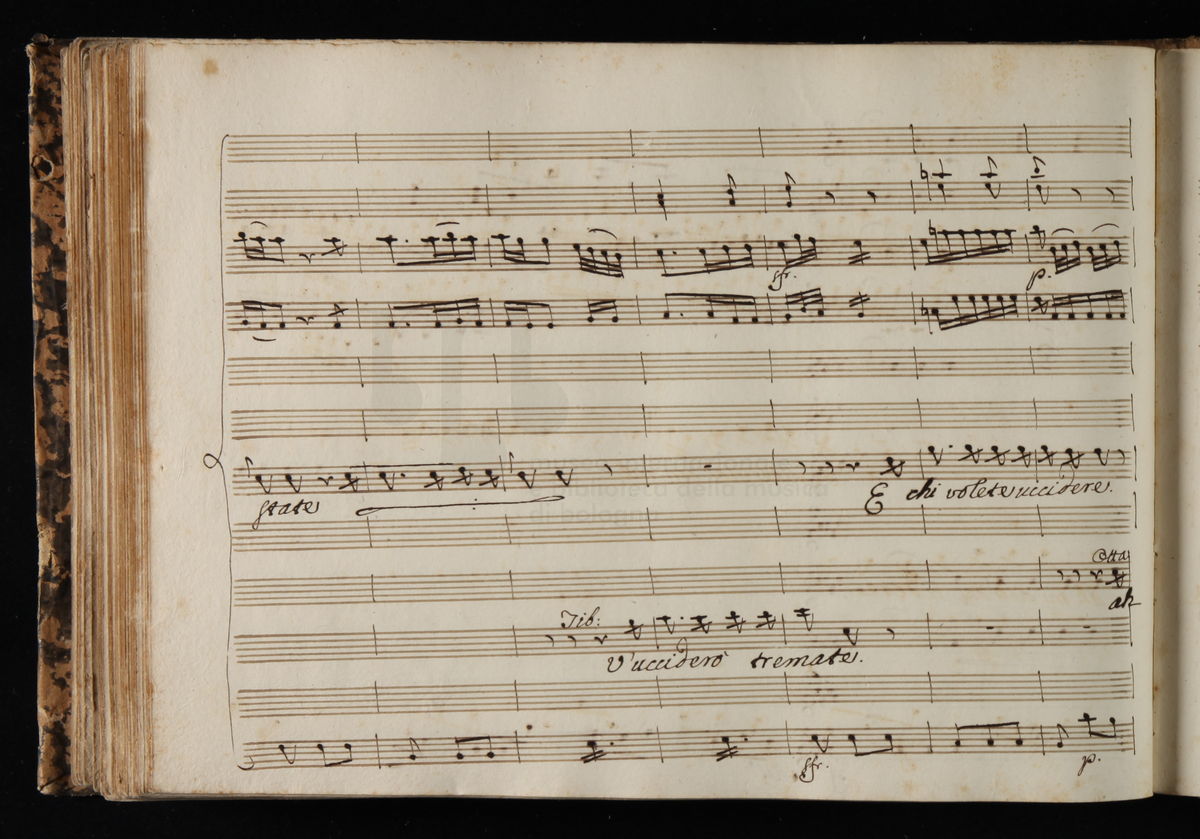 sfr.
p.
state
E chi volete uccidere.
Otta:
ah
Tib:
V'ucciderò tremate.
sfr.
p.
biblioteca della musica
di bologna